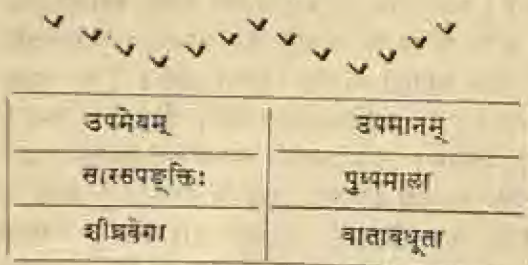 उपमेयम् उपमानम्
सारसपङ्क्तिः पुष्पमाला
शीघ्रवेगा वातावधूता